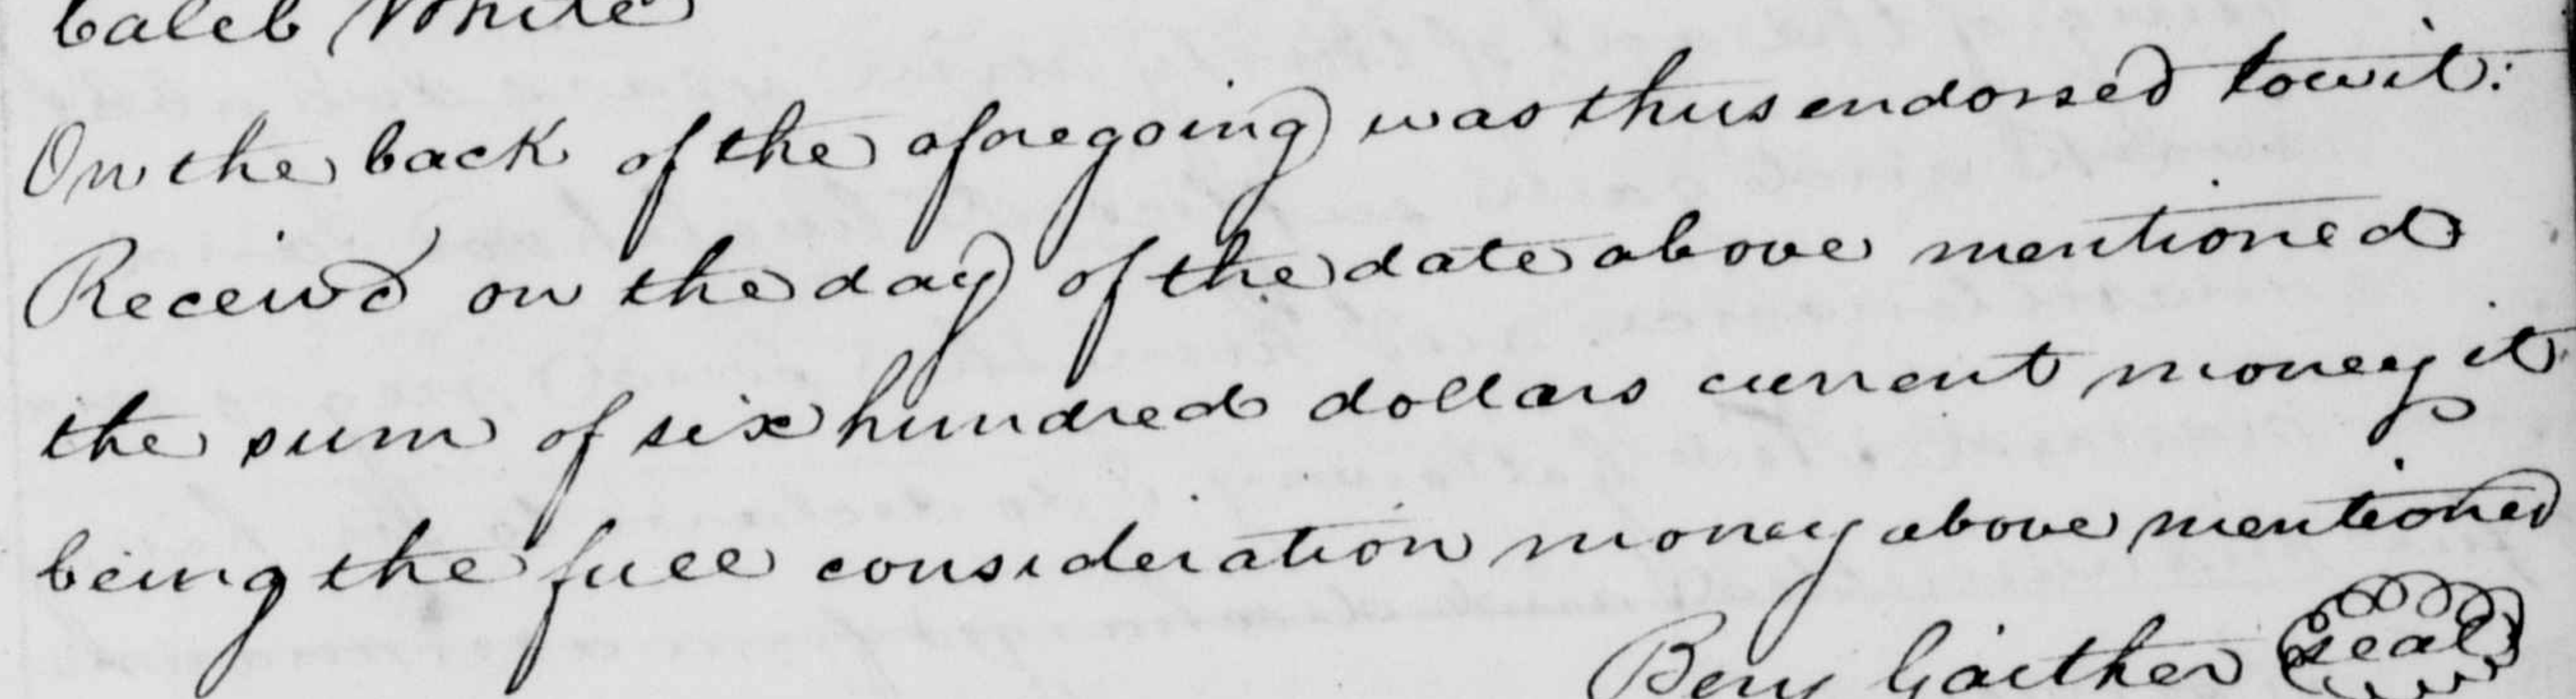 Caleb White
On the back of the aforegoing was thus endorsed towit:
Receiv'd on the day of the date above mentioned
the sum of six hundred dollars current money it
being the full consideration money above mentioned
Benj Gaither seal